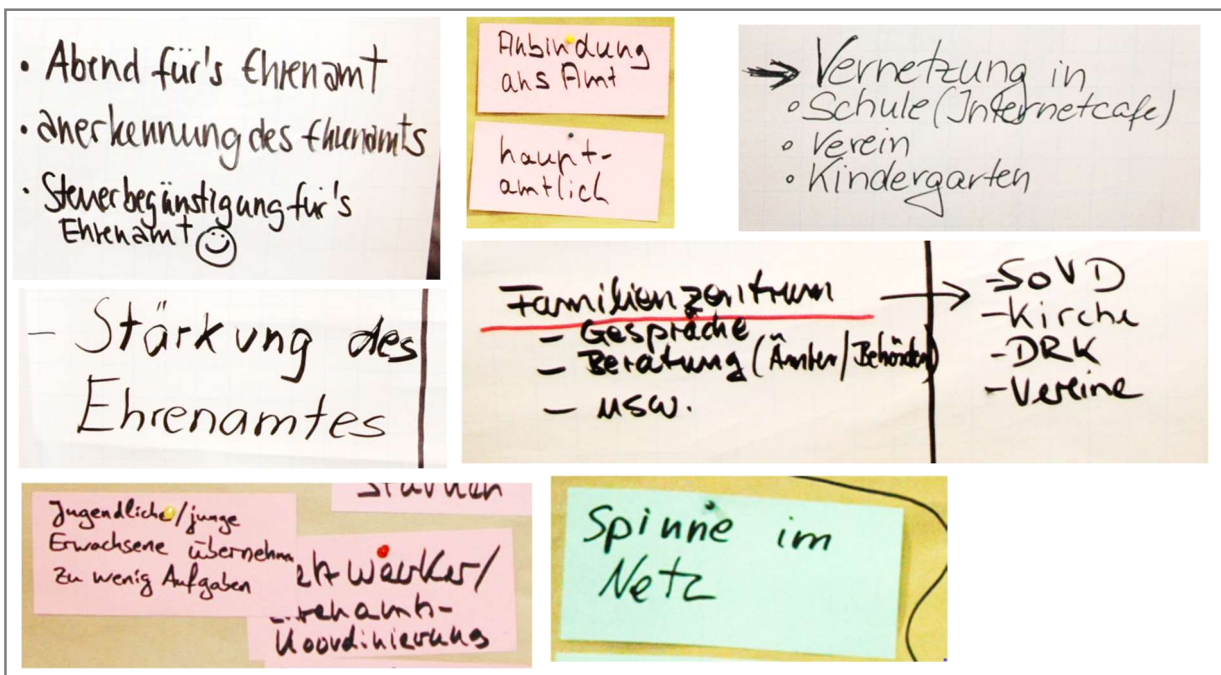 • Abend für's Ehrenamt
• anerkennung des Ehrenamts
• Steuerbegünstigung für's
Ehrenamt
Anbindung
ans Amt
haupt-
amtlich
Vernetzung in
• Schule (Internetcafe)
• Verein
• Kindergarten
- Stärkung des
Ehrenamtes
Familienzentrum
- Gespräche
- Beratung (Ämter/Behörden)
- usw.
- SoVD
- Kirche
- DRK
- Vereine
Jugendliche/junge
Erwachsene übernehm
zu wenig Aufgaben
koordinierung
Spinne im
Netz